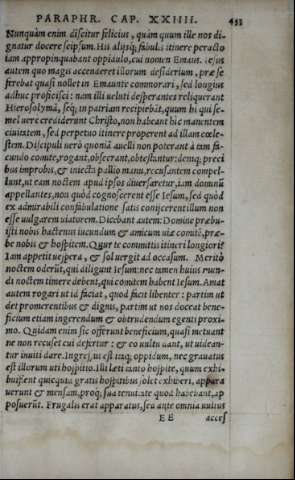 PARAPHR. CAP. XXIIII. 433
Nunquàm enim discitur felicius, quàm quum ille nos di-
gnatur docere seipsum. His alijsq; fabulis itinere peracto
iam appropinquabant oppidulo, cui nomen Emaus. Iesus
autem quo magis accenderet illorum desiderium, præ se
ferebat quasi nollet in Emaunte commorari, sed longius
adhuc proficisci: nam illi ueluti desperantes reliquerant
Hierosolymā, seq; in patriam recipiebāt, quum hi qui se-
mel uere crediderunt Christo, non habeant hic manentem
ciuitatem, sed perpetuo itinere properent ad illam cœle-
stem. Discipuli uerò quoniā auelli non poterant à tam fa-
cundo comite, rogant, obsecrant, obtestantur: demq; preci
bus improbis, & iniecta pallio manu, recusantem compel-
lunt, ut eam noctem apud ipsos diuersaretur, iam domnū
appellantes, non quòd cognoscerent esse Iesum, sed quòd
ex admirabili confabulatione satis conijcerent illum non
esse uulgarem uiatorem. Dicebant autem: Domine præbu-
isti nobis hactenus iucundum & amicum uiæ comitē, præ-
be nobis & hospitem. Cur te committis itineri longiori?
Iam appetit uespera, & sol uergit ad occasum. Meritò
noctem oderūt, qui diligunt Iesum: nec tamen huius mun-
di noctem timere debent, qui comitem habent Iesum. Amat
autem rogari ut id faciat, quod facit libenter: partim ut
det promerentibus & dignis, partim ut nos doceat bene-
ficium etiam ingerendum & obtrudendum egenti proxi-
mo. Quidam enim sic offerunt beneficium, quasi metuant
ne non recuset cui defertur: & eo uultu dant, ut uidean-
tur inuiti dare. Ingressus est itaq; oppidum, nec grauatus
est illorum uti hospitio. Illi læti tanto hospite, quum exhi-
buissent quicquid gratis hospitibus solet exhiberi, appara
uerunt & mensam, proq; sua tenuitate quod habebant, ap-
posuerūt. Frugalis erat apparatus, sed ante omnia uultus
EE acces